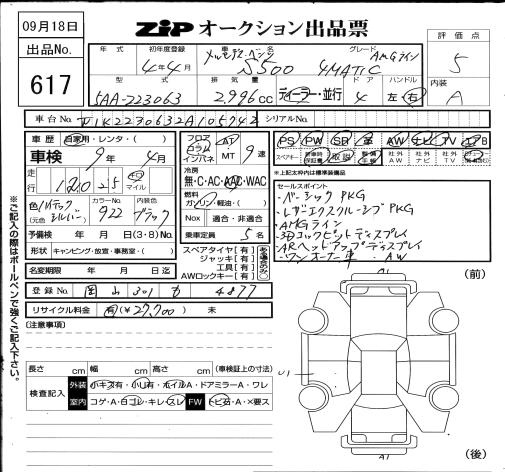 09月18日
ZIP オークション出品票
評価点
5
出品No.
617
年式
初年度登録
4年4月
車名
メルセデス・ベンツ
S500
グレード
AMGライン
4MATIC
内装
A
型式
5AA-223063
排気量
2996cc
ディーラー・並行
ドア
4
ハンドル
左・右
車台No.
W1K2230632A105742
シリアルNo.
車歴
自家用・レンタ・( )
車検
9年 4月
走行
マイル
色
(元色 シルバー)
カラーNo.
922
内装色
ブラック
予備検 年 月 日(3・8)No.
形状
キャンピング・放宣・事務室・( )
名変期限 年 月 日迄
フロア
コラム
インパネ
AT
MT
9速
冷房
無・C・AC・AAC・WAC
燃料
ガソリン・軽油・( )
Nox
適合・非適合
乗車定員 5名
スペアタイヤ[有]
ジャッキ[有]
工具[有]
AWロックキー[有]
PS PW SR 革 AW ナビ TV エアB
スペアキー
取説
社外AW
社外ナビ
社外TV
*上記太枠内は標準装備品
セールスポイント
・ベーシックPKG
・レザーエクスクルーシブPKG
・AMGライン
・3Dコックピットディスプレイ
・ARヘッドアップディスプレイ
・ワンオーナー車 ・AW
登録No.
岡山 301 4877
リサイクル料金
有(¥27,700) 未
(注意事項)
長さ cm 幅 cm 高さ cm (車検証上の寸法)
検査記入
外装
小キズ有・小凹有・ホイルA・ドアミラーA・ワレ
室内
コゲ・A・ヨゴレ・キレ・スレ
FW
トビ石・A・×要ス
ご記入の際はボールペンで強くご記入下さい。
(前)
A1
U1
A1
(後)